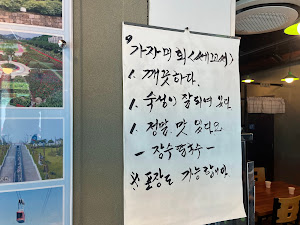 가자미회(세꼬시)
1. 깨끗하다.
1. 숙성이 잘되어 있다
1. 정말 맛 있다요
- 장수팥죽수 -
※ 포장도 가능합니다